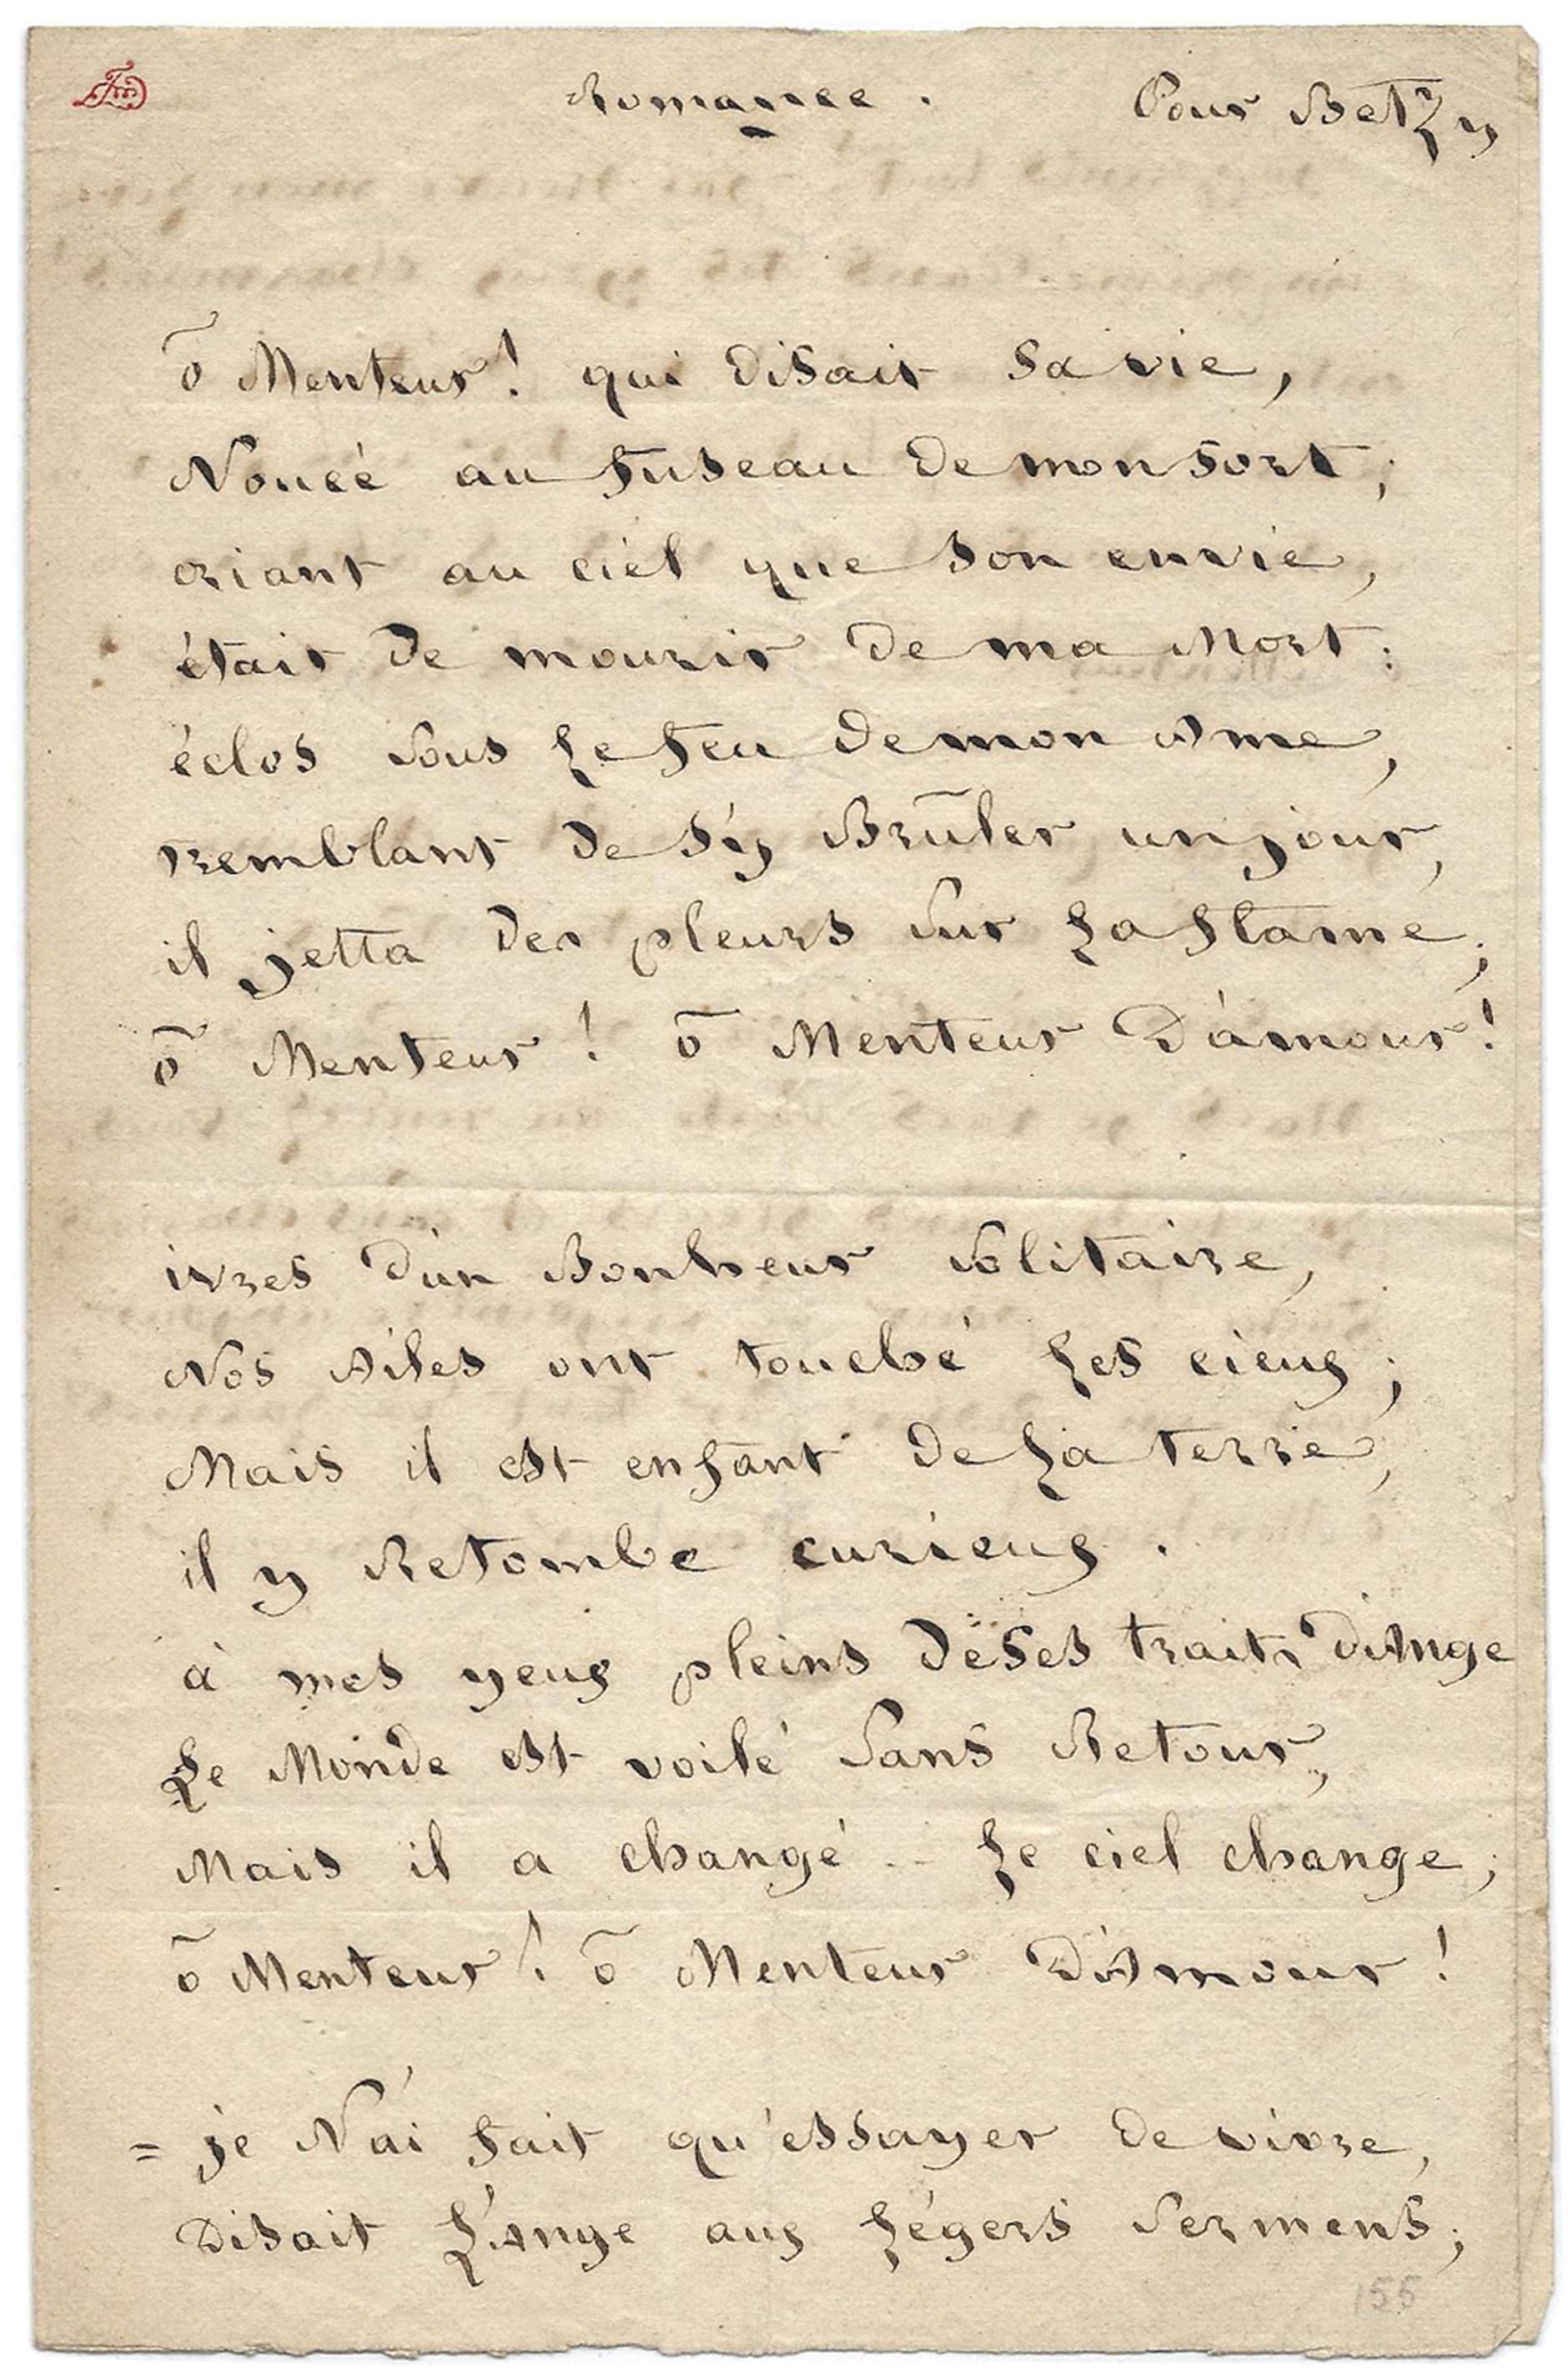 Romance. Pour Betzy
ô Menteur! qui disait sa vie,
Nouée au fuseau de mon sort;
criant au ciel que son envie,
était de mourir de ma Mort:
éclos sous le feu de mon Ame,
tremblant de s'y Brûler un jour,
il jetta des pleurs sur la flame;
ô Menteur! ô Menteur D'amour!
ivres d'un Bonheur solitaire,
Nos Ailes ont touché les cieux;
Mais il est enfant de la terre,
il y Retombe curieux.
à mes yeux pleins de ses traits d'Ange
Le Monde est voilé sans Retour,
Mais il a changé.. le ciel change;
ô Menteur! ô Menteur D'Amour!
= je N'ai fait qu'essayer de vivre,
Disait L'Ange aux légers sermens;
155